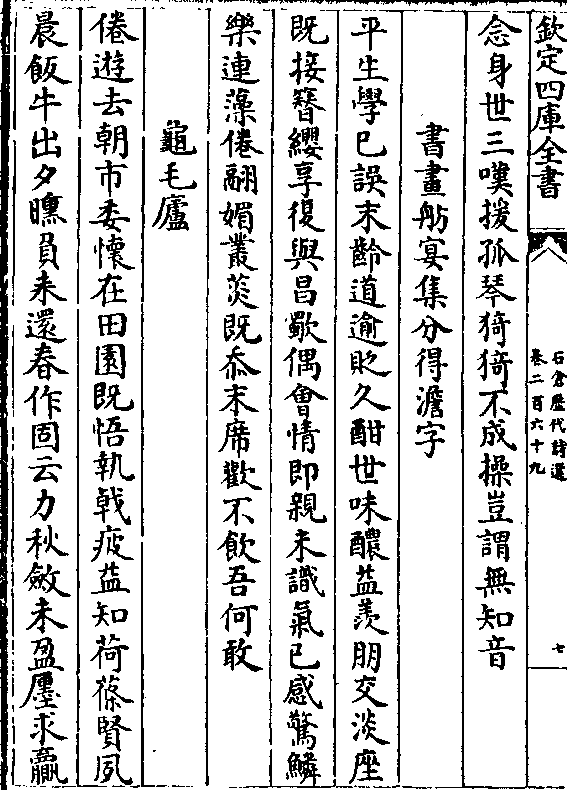 欽定四庫全書
石倉歷代詩選
卷二百六十九
七
念身世三嘆援孤琴猗猗不成操豈謂無知音
書畫舫宴集分得澹字
平生學已誤末齡道逾貶久酣世味醲益羨朋交淡座
既接簪纓享復與昌歜偶會情即親未識氣已感驚鱗
樂連藻倦翮媚叢菼既忝末席歡不飲吾何敢
龜毛廬
倦遊去朝市委懷在田園既悟執戟疲益知荷蓧賢夙
晨飯牛出夕曛負耒還春作固云力秋斂未盈廛求贏